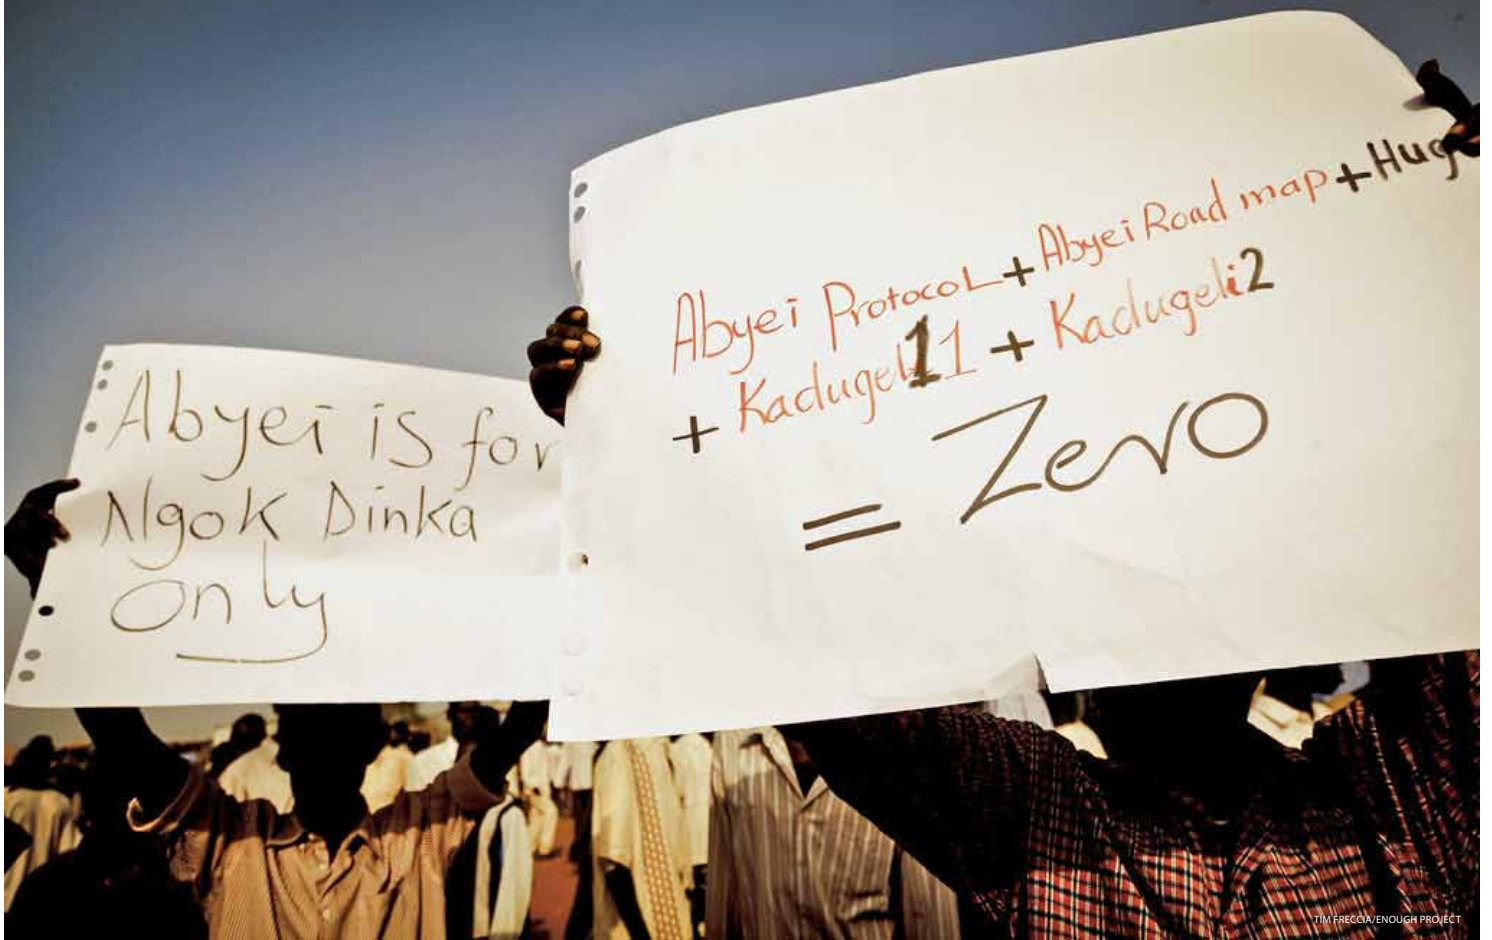 Abyei is for
Ngok Dinka
only
Abyei Protocol + Abyei Road map + Hug
+ Kadugeli1 1 + Kadugeli2
= Zero
TIM FRECCIA/ENOUGH PROJECT